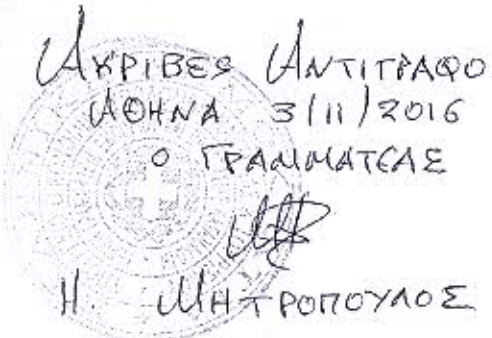 ΑΚΡΙΒΕΣ ΑΝΤΙΓΡΑΦΟ
ΑΘΗΝΑ 3/11/2016
Ο ΓΡΑΜΜΑΤΕΑΣ
Η. ΜΗΤΡΟΠΟΥΛΟΣ